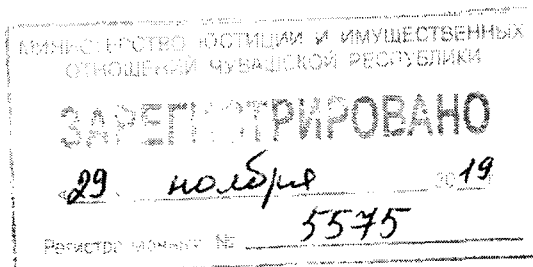 МИНИСТЕРСТВО ЮСТИЦИИ И ИМУЩЕСТВЕННЫХ
ОТНОШЕНИЙ ЧУВАШСКОЙ РЕСПУБЛИКИ
ЗАРЕГИСТРИРОВАНО
«29» ноября 2019
Регистрационный № 5575